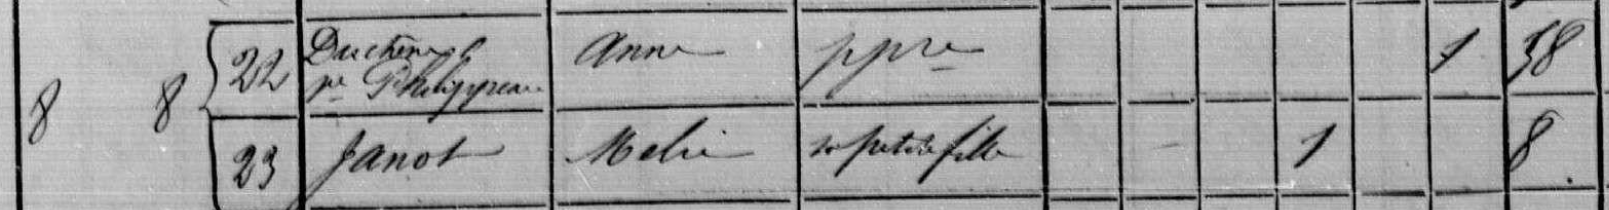 8 8 22 Duchêne Anne ppre 1 58
pe Philippeau
23 Janot Melie sa petite fille 1 8